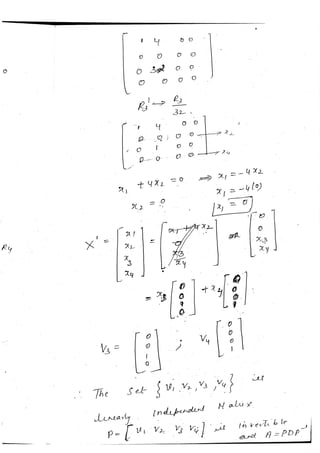 1 4 0 0
0 0 0 0
0 32 0 0
0 0 0 0
R3' → R3/32
1 4 0 0
0 0 0 0 → x2
0 1 0 0
0 0 0 0 → x4
x1 + 4x2 = 0 ⇒ x1 = -4x2
x2 = 0 x1 = -4(0)
x1 = 0
R4
X' = [x1 x2 x3 x4] = OR [0 0 x3 x4]
= x3 [0 0 1 0] + x4 [0 0 0 1]
V3 = [0 0 1 0] ; V4 [0 0 0 1]
The set {V1, V2, V3, V4} is
linearly Independent Matrix
P = [V1 V2 V3 V4] is invertible
and A = PDP^-1